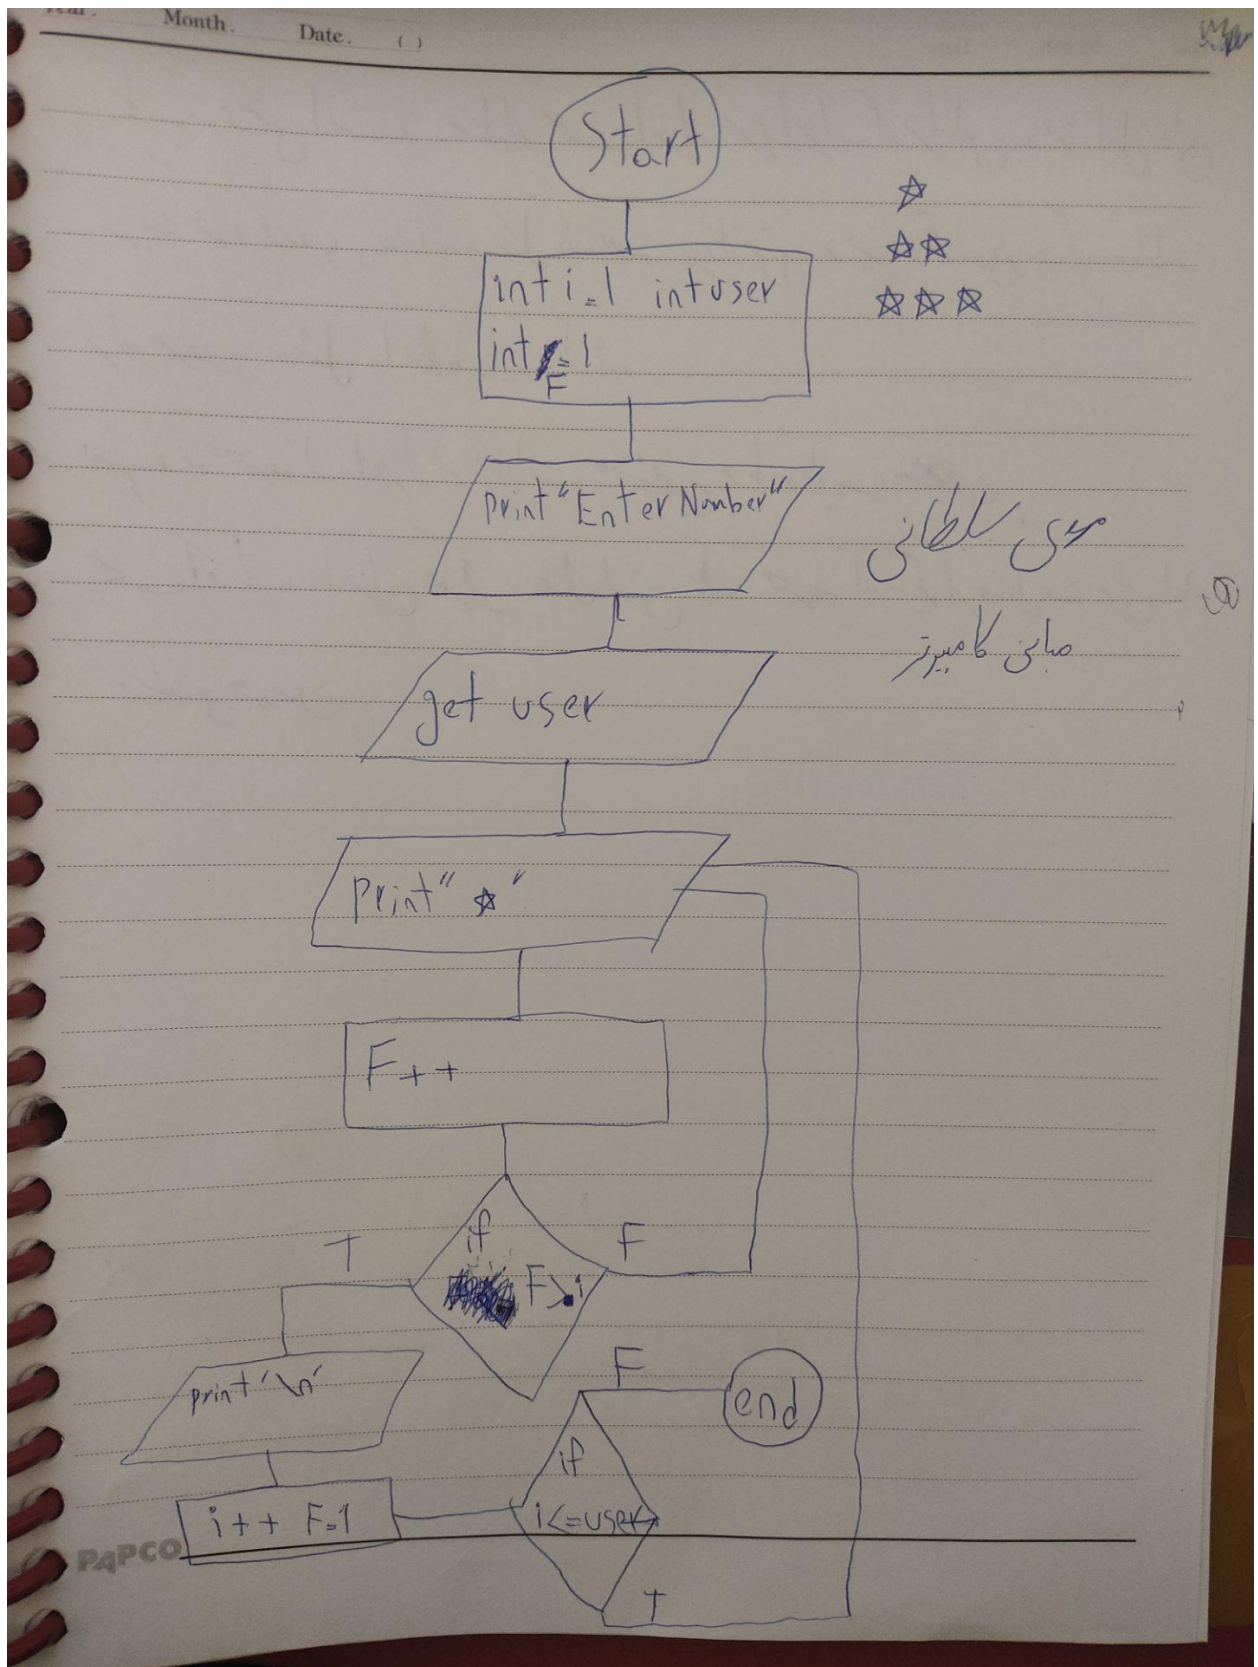 Year. Month. Date. ( )
Start
int i=1 int user
int F=1
print "Enter Number"
سلطانی
مبانی کامپیوتر
get user
print "☆"
F++
if
F>i
T
F
print '\n'
i++ F=1
if
i<=user
F
end
T
PAPCO